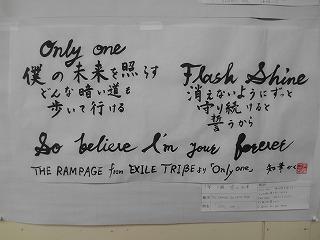 Only one
僕の未来を照らす
どんな暗い道も
歩いて行ける
Flash Shine
消えないようにずっと
守り続けると
誓うから
So believe I'm your forever
THE RAMPAGE from EXILE TRIBEより「Only one」 知華かく